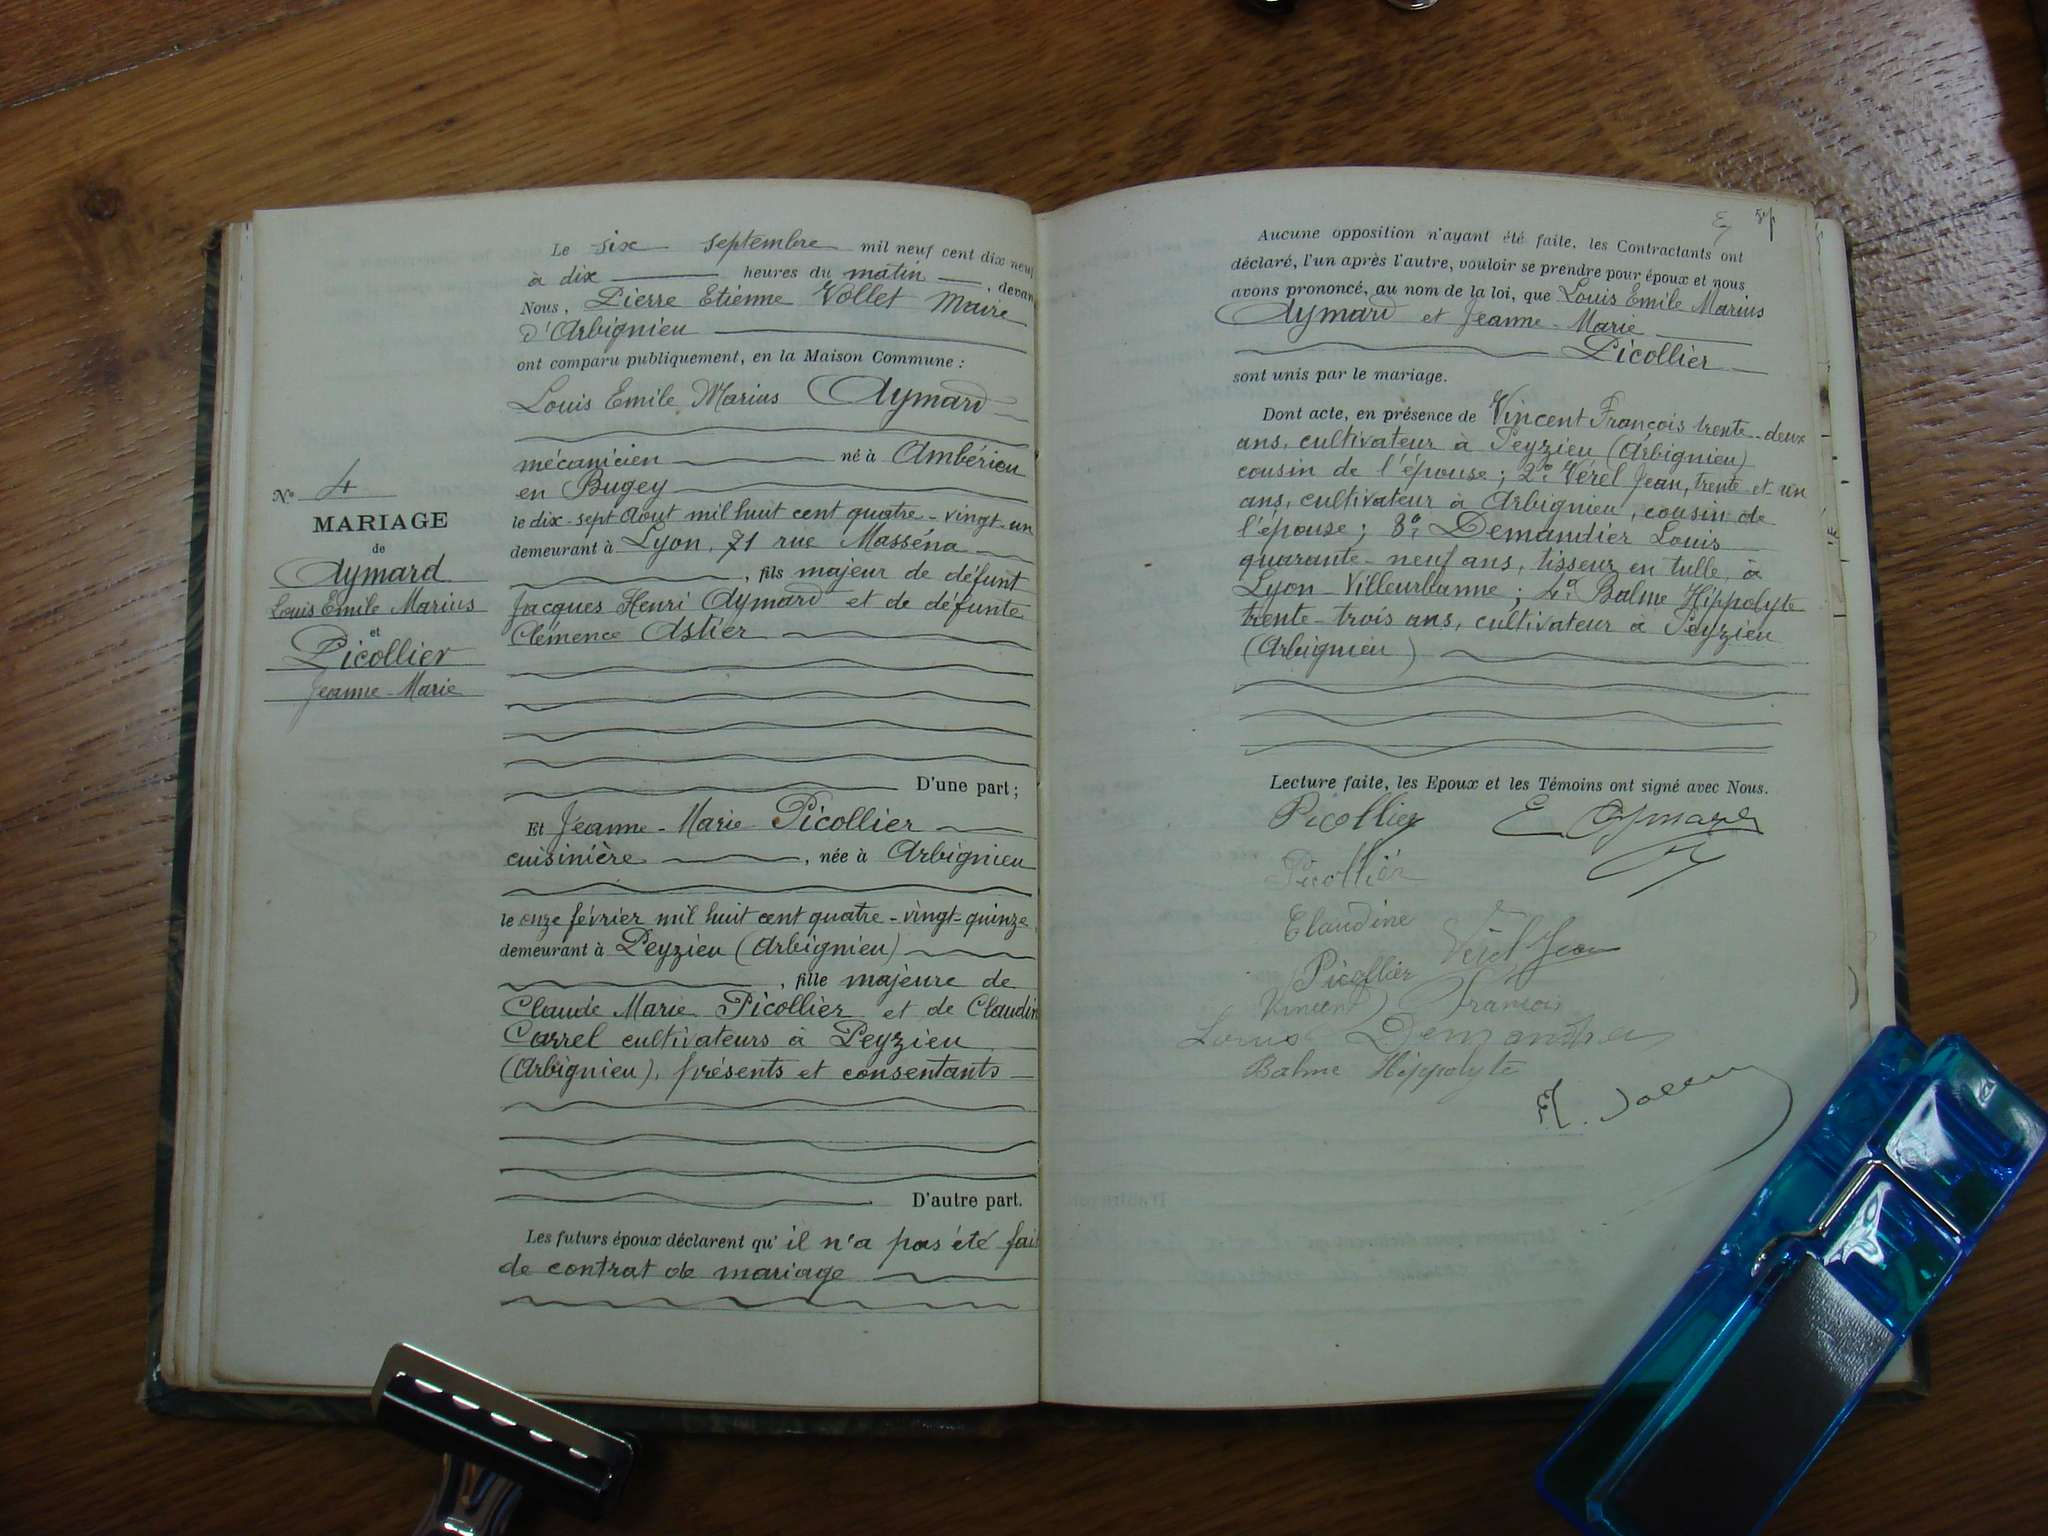 Nº 4
MARIAGE
de
Aymard
Louis Emile Marius
et
Picollier
Jeanne-Marie
Le six septembre mil neuf cent dix neuf
à dix heures du matin, devan
Nous, Pierre Etienne Vollet Maire
d'Arbignieu
ont comparu publiquement, en la Maison Commune :
Louis Emile Marius Aymard
mécanicien né à Ambérieu
en Bugey
le dix-sept Aout mil huit cent quatre-vingt-un
demeurant à Lyon, 71 rue Masséna
, fils majeur de défunt
Jacques Henri Aymard et de défunte
Clémence Astier
D'une part ;
Et Jeanne-Marie Picollier
cuisinière, née à Arbignieu
le onze février mil huit cent quatre-vingt-quinze
demeurant à Peyzieu (Arbignieu)
, fille majeure de
Claude Marie Picollier et de Claudin
Carrel cultivateurs à Peyzieu
(Arbignieu), présents et consentants
D'autre part.
Les futurs époux déclarent qu'il n'a pas été fai
de contrat de mariage
Aucune opposition n'ayant été faite, les Contractants ont
déclaré, l'un après l'autre, vouloir se prendre pour époux et nous
avons prononcé, au nom de la loi, que Louis Emile Marius
Aymard et Jeanne-Marie
Picollier
sont unis par le mariage.
Dont acte, en présence de Vincent François trente-deux
ans, cultivateur à Peyzieu (Arbignieu)
cousin de l'épouse ; 2º Vérel Jean, trente-et-un
ans, cultivateur à Arbignieu, cousin de
l'épouse ; 3º, Demandier Louis
quarante-neuf ans, tisseur en tulle, à
Lyon-Villeurbanne ; 4º Balme Hippolyte
trente-trois ans, cultivateur à Peyzieu
(Arbignieu)
Lecture faite, les Epoux et les Témoins ont signé avec Nous.
Picollier E Aymard
Picollier
Claudine
Picollier Vérel Jean
Vincent François
Louis
Balme Hippolyte